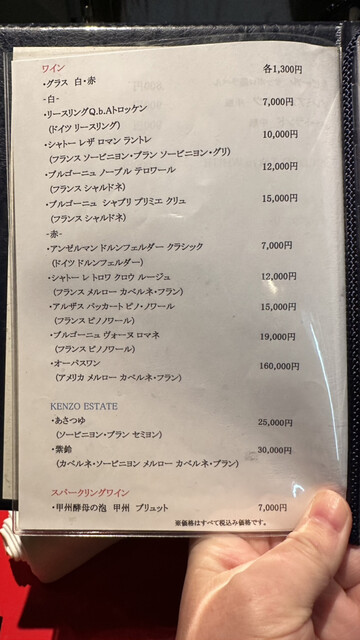 ワイン
・グラス 白・赤 各1,300円
-白-
・リースリングQ.b.Aトロッケン 7,000円
(ドイツ リースリング)
・シャトー レザ ロマン ラントレ 10,000円
(フランス ソービニヨン・ブラン ソービニヨン・グリ)
・ブルゴーニュ ノーブル テロワール 12,000円
(フランス シャルドネ)
・ブルゴーニュ シャブリ プリミエ クリュ 15,000円
(フランス シャルドネ)
-赤-
・アンゼルマン ドルンフェルダー クラシック 7,000円
(ドイツ ドルンフェルダー)
・シャトー レ トロワ クロウ ルージュ 12,000円
(フランス メルロー カベルネ・フラン)
・アルザス バッカート ピノ・ノワール 15,000円
(フランス ピノノワール)
・ブルゴーニュ ヴォーヌ ロマネ 19,000円
(フランス ピノノワール)
・オーパスワン 160,000円
(アメリカ メルロー カベルネ・フラン)
KENZO ESTATE
・あさつゆ 25,000円
(ソービニヨン・ブラン セミヨン)
・紫鈴 30,000円
(カベルネ・ソービニヨン メルロー カベルネ・ブラン)
スパークリングワイン
・甲州酵母の泡 甲州 ブリュット 7,000円
※価格はすべて税込み価格です。